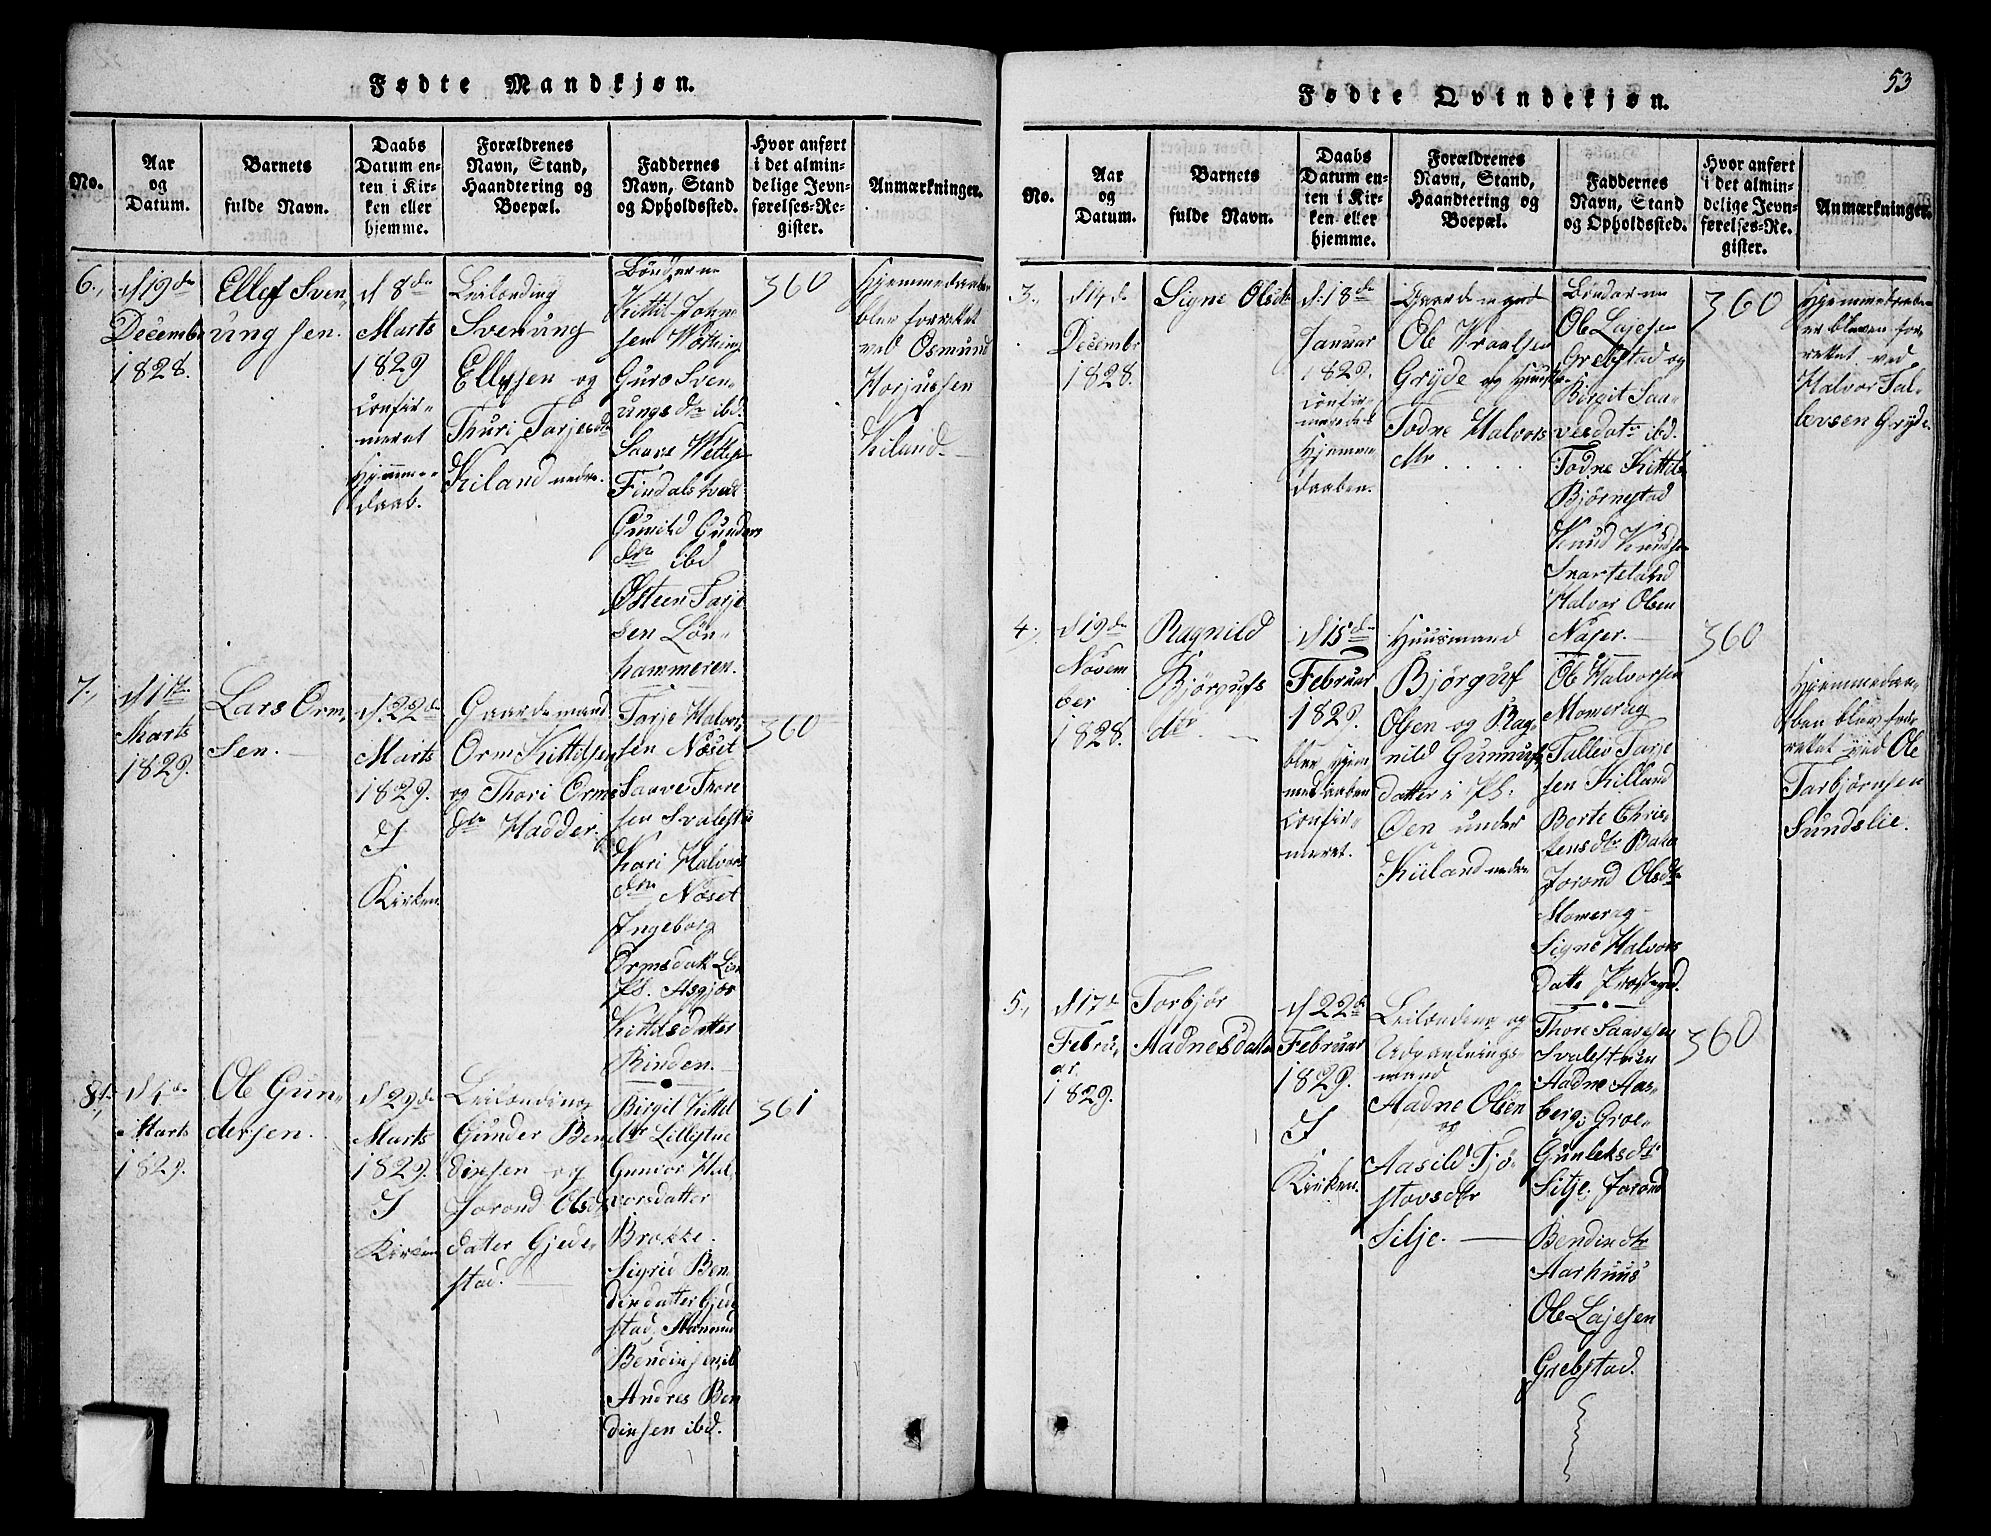 Fødte Mandkjøn.
No.
Aar
og
Datum.
Barnets
fulde Navn.
Daabs
Datum en-
ten i Kir-
ken eller
hjemme.
Forældrenes
Navn, Stand,
Haandtering og
Boepæl.
Faddernes
Navn, Stand
og Opholdssted.
Hvor anført
i det almin-
delige Jevn-
førelses-Re-
gister.
Anmærkninger.
6.,
d 19de
Decembr
1828.
Ellef Sven,
ungsen.
d 8de
Marts
1829
confir-
meret
Hjemme-
daab.
Leilænding
Svenung
Ellefsen og
Thuri Tarjesdtr
Kiland nedre.
Bønderne
Kittil John
sen
Guro Sven-
ungsdtr ibd.
Saave
Findalstvedt
Gunild Gunders
dtr ibd
Østeen Tarje
sen Løn-
hammeren.
360
Hjemmedaaben
blev forrettet
ved Osmund
Kiland.
7.,
d 1ste
Marts
1829.
Lars Orm,
sen.
d. 22de
Marts
1829.
I
Kirken
Gaardemand
Orm Kittelsen
og Thori Orms
dtr Hadder.
Tarje Halvor
sen Næset
Saave Thore
sen
Kari Halvors
dtr Næset
Ingeborg
Ormsdatt
Pl. Asgjør
Kittelsdatter
Rinden.
360
8de.,
d 4de
Marts
1829.
Ole Gun-
dersen.
d 29de
Marts
1829.
I
Kirken
Leilænding
Gunder Ben
dixsen og
Jorond Olsd
datter Gjede-
stad.
Birgit Kittel
dtr Lillestue
Gunvor Hal-
vorsdatter
Brokke.
Sigrid Ben
dixdatter Gjede
stad,
Bendixsen ib
Andres Ben
dixsen ibd.
361
53
Fødte Qvindekjøn.
No.
Aar
og
Datum.
Barnets
fulde Navn.
Daabs
Datum en-
ten i Kir-
ken eller
hjemme.
Forældrenes
Navn, Stand,
Haandtering og
Boepæl.
Faddernes
Navn, Stand
og Opholdssted.
Hvor anført
i det almin-
delige Jevn-
førelses-Re-
gister.
Anmærkninger.
3.,
d 14de
Decembr
1828.
Signe Olsdtr
d. 18de
Januar
1829.
confir-
meredes
Hjemme
daaben.
Gaardemand
Ole Vraalsen
Gryde og Hustr
Todne Halvors
dtr
Bønderne
Ole Lajesen
Grebstad og
Birgit Saa-
vesdatr ibd.
Todne Kittils
Bjørnestad
Knud Knuds
Svarteland
Halvor Olsen
Najer.
360
Hjemmedaaben
er bleven for
rettet ved
Halvor Tal-
levsen Gryde.
4.,
d 19de
Novem
ber
1828.
Ragnild
Bjørgufs
dtr.
d 15de
Februar
1829.
blev hjem
medaaben
confir-
meret.
Huusmand
Bjørguf
Olsen og Rag-
nild Gunnufs
datter i Pl:
Øen under
Kiiland nedre
Ole Halvorsen
Momerag
Tallev Tarje
sen Kiland
Berte Chris-
tensdtr
Jorond Olsdtr
Momerag
Signe Halvors
datte
360
Hjemmedaa-
ben blev for-
rettet ved Ole
Torbjørnsen
Sundslie.
5.,
d 17de
Febru,
ar.
1829.
Torbjør
Aadnesdatter
d 22de
Februar
1829.
I
Kirken.
Leilænding og
mand
Aadne Olsen
og
Aasild Tjø-
stovsdtr
Silje.
Thore Saavesen
Aadne Aas-
berg; Groe-
Gunleksdtr
Silje. Jorond
Bendixdtr
Aarhuus
Ole Lajesen
Grebstad.
360